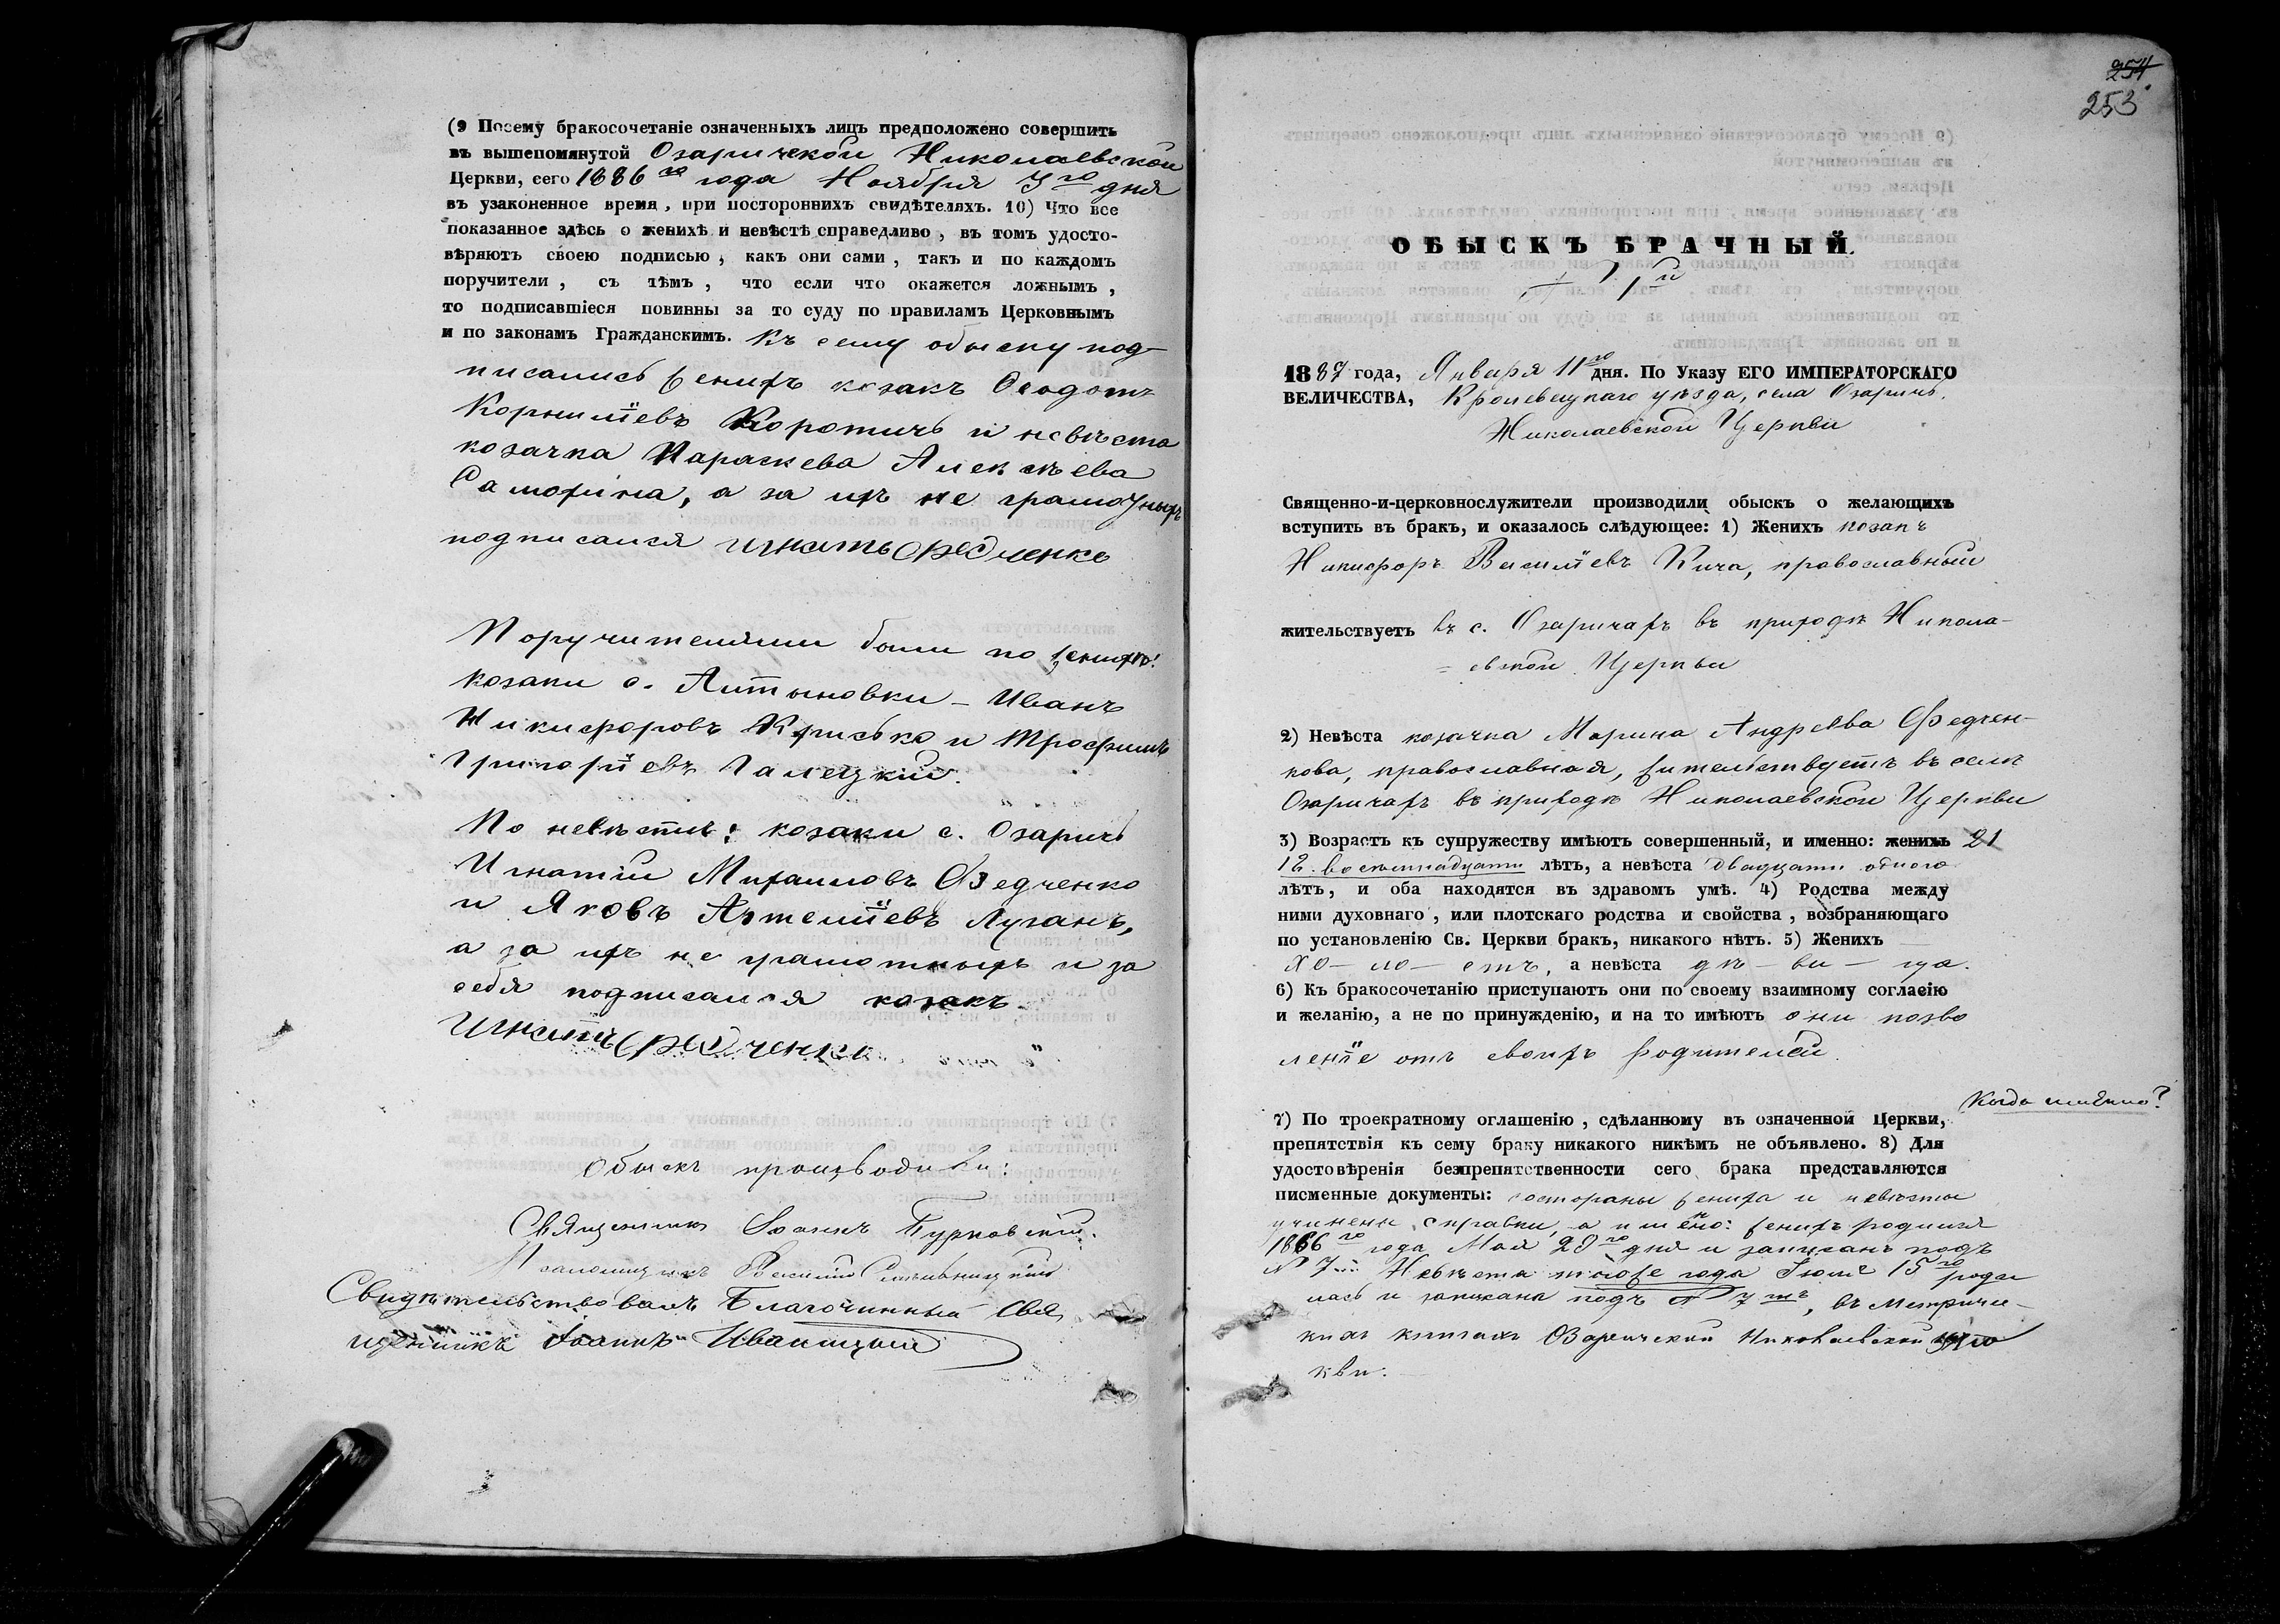 (9 Посему бракосочетаніе означенныхъ лицъ предположено совершить
въ вышепомянутой Озаричской Николаевской
Церкви, сего 1886го года Ноября 3го дня
въ узаконенное время, при постороннихъ свидѣтеляхъ. 10) Что все
показанное здѣсь о женихѣ и невѣстѣ справедливо, въ томъ удосто-
вѣряютъ своею подписью, какъ они сами, такъ и по каждомъ
поручители, съ тѣмъ, что если что окажется ложнымъ,
то подписавшіеся повинны за то суду по правиламъ Церковнымъ
и по законамъ Гражданскимъ. Къ сему обыску под-
писались женихъ козакъ Ѳеодотъ
Корниліевъ Коротичъ и невѣста
козачка Параскева Алексѣева
а за ихъ не грамотныхъ
подписался Игнатъ Федченко
Поручителями были по женихѣ:
козаки с. Алтыновки - Иванъ
Никифоровъ и Трофимъ
Григоріевъ Галецкій.
По невѣстѣ: козаки с. Озаричъ
Игнатій Михаиловъ Федченко
и Яковъ Артеміевъ Лузанъ,
а за ихъ не грамотныхъ и за
себя подписался козакъ
Игнатъ Федченко
Обыскъ производили:
Священникъ Іоаннъ Бурковскій.
Псаломщикъ Василій
Свидѣтельствовалъ Благочинный Свя
щенникъ Іоаннъ Иваницкій
254
253
ОБЫСКЪ БРАЧНЫЙ.
№ 1й
1887 года, Января 11го дня. По Указу ЕГО ИМПЕРАТОРСКАГО
ВЕЛИЧЕСТВА, Кролевецкаго уѣзда, села Озаричъ,
Николаевской Церкви
Священно-и-церковнослужители производили обыскъ о желающихъ
вступить въ бракъ, и оказалось слѣдующее: 1) Женихъ козакъ
Никифоръ Василіевъ Кича, православный
жительствуетъ въ с. Озаричахъ въ приходѣ Никола-
= евской Церкви
2) Невѣста козачка Марина Андреева Федчен-
кова, православная, жительствуетъ въ селѣ
Озаричахъ въ приходѣ Николаевской Церкви
3) Возрастъ къ супружеству имѣютъ совершенный, и именно: женихъ 21
18. восемнадцати лѣтъ, а невѣста двадцати одного
лѣтъ, и оба находятся въ здравомъ умѣ. 4) Родства между
ними духовнаго, или плотскаго родства и свойства, возбраняющаго
по установленію Св. Церкви бракъ, никакого нѣтъ. 5) Женихъ
хо- ло- стъ, а невѣста дѣ- ви- ца.
6) Къ бракосочетанію приступаютъ они по своему взаимному согласію
и желанію, а не по принужденію, и на то имѣютъ они позво
леніе отъ своихъ родителей.
Когда именно?
7) По троекратному оглашенію, сдѣланному въ означенной Церкви,
препятствія къ сему браку никакого никѣмъ не объявлено. 8) Для
удостовѣренія безпрепятственности сего брака представляются
писменные документы: состораны жениха и невѣсты
учинены справки, а имено: женихъ родился
1866го года Мая 29го дня и записанъ подъ
№ 7. Невѣста тогоже года Іюля 15го роди
лась и записана подъ № 7мъ, въ Метриче-
кихъ книгахъ Озаричской Николаевской Цер
кви.